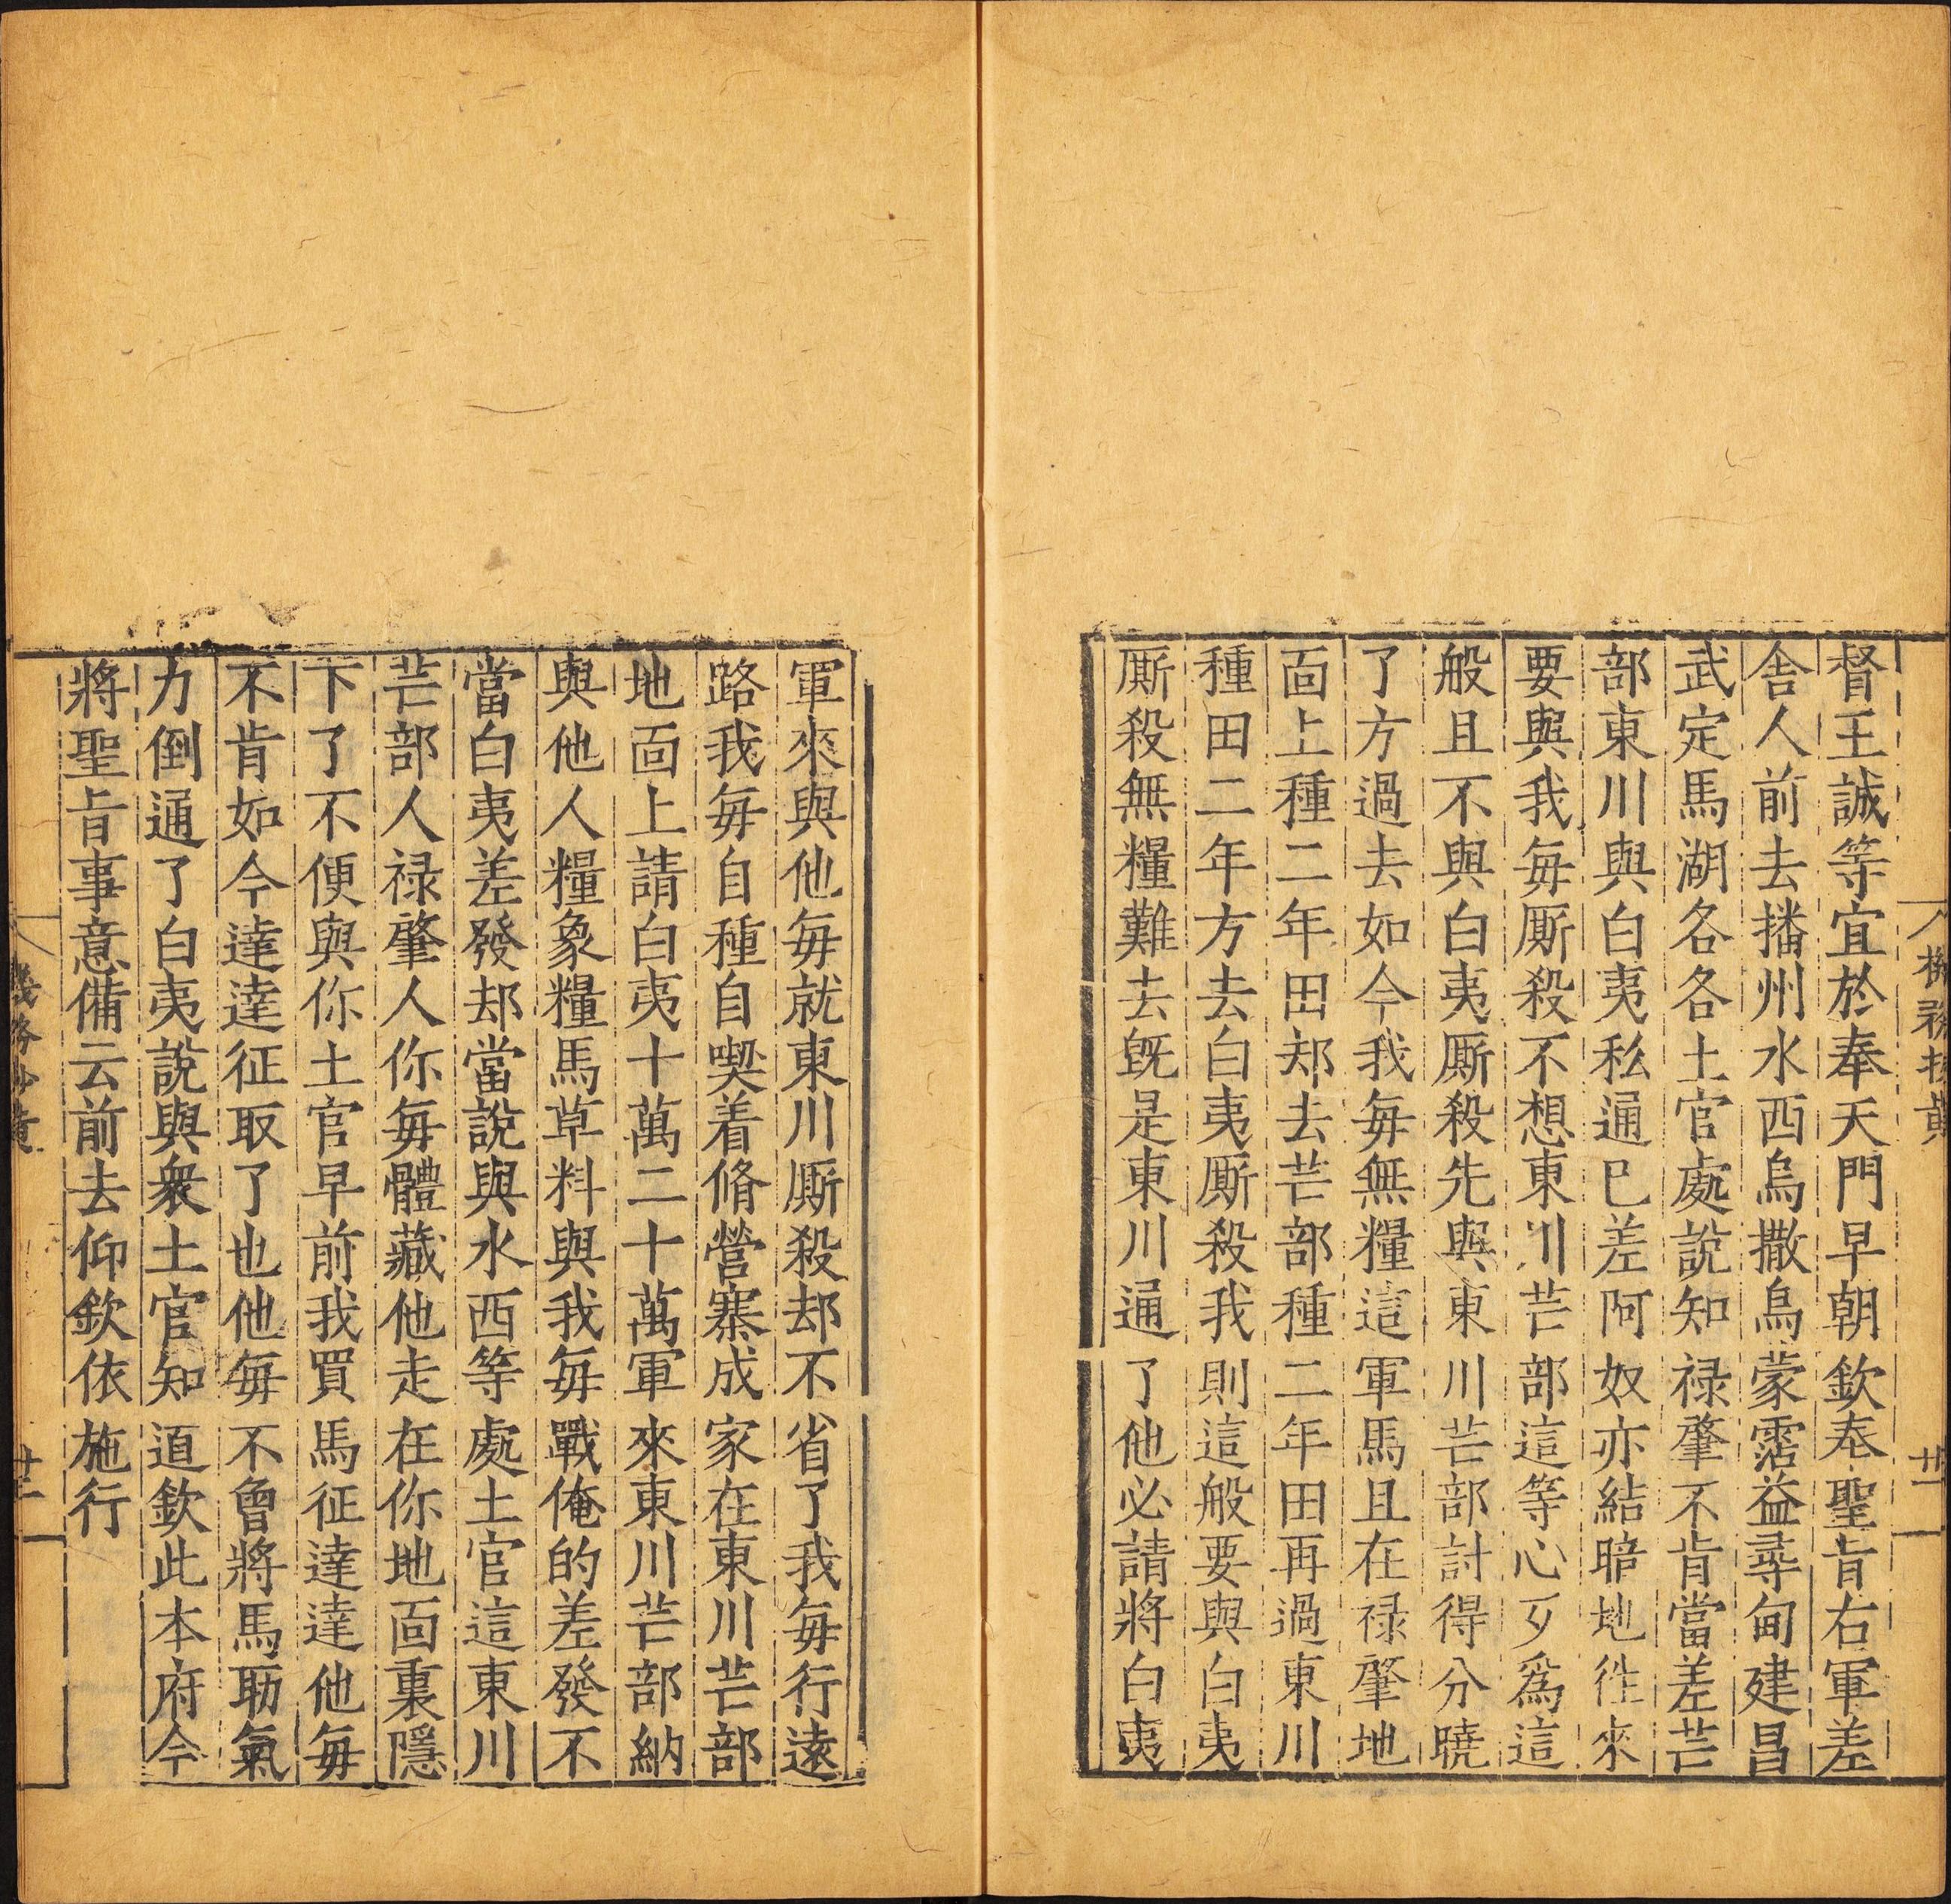 督王誠等宜於奉天門早朝欽奉聖旨右軍差
舍人前去播州水西烏撒烏蒙霑益尋甸建昌
武定馬湖各各土官處說知禄肇不肯當差芒
部東川與白夷私通已差阿奴亦結暗地徃來
要與我每厮殺不想東川芒部這等心歹爲這
般且不與白夷厮殺先與東川芒部討得分曉
了方過去如今我每無糧這軍馬且在禄肇地
面上種二年田却去芒部種二年田再過東川
種田二年方去白夷厮殺我則這般要與白夷
厮殺無糧難去旣是東川通了他必請將白夷
軍來與他每就東川厮殺却不省了我每行逺
路我每自種自喫着脩營寨成家在東川芒部
地面上請白夷十萬二十萬軍來東川芒部納
與他人糧象糧馬草料與我每戰俺的差發不
當白夷差發却當說與水西等處土官這東川
芒部人禄肇人你每體藏他走在你地面裏隱
下了不便與你土官早前我買馬征達達他每
不肯如今達達征取了也他每不曾將馬助氣
力倒通了白夷說與衆土官知道欽此本府今
將聖旨事意備云前去仰欽依施行